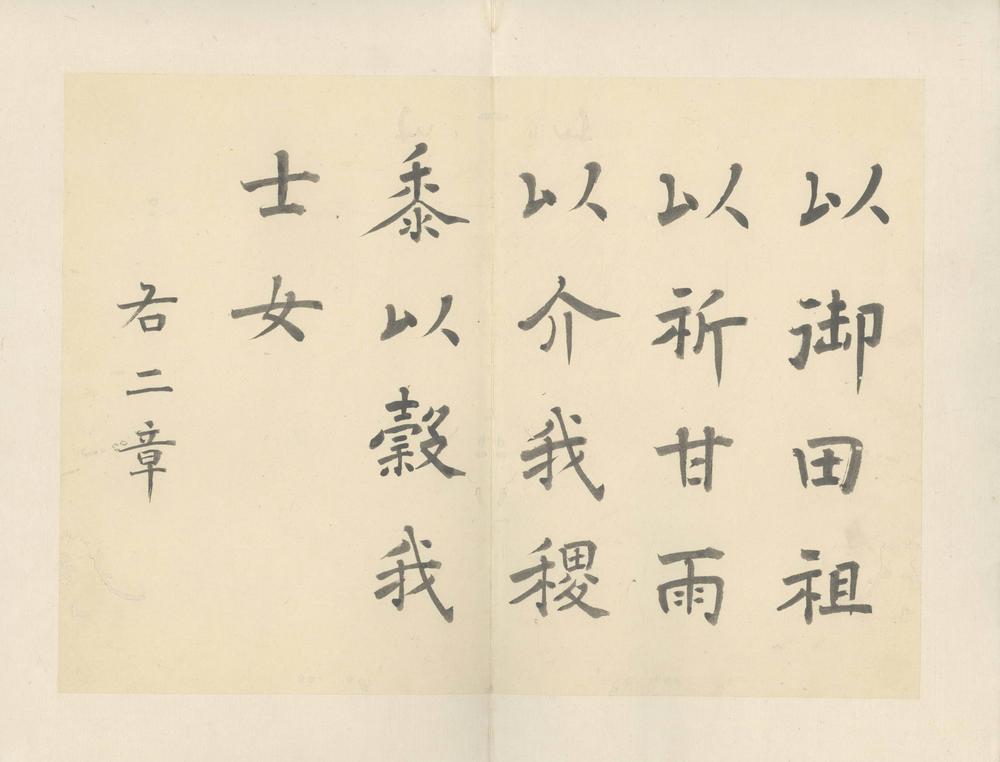 以御田祖
以祈甘雨
以介我稷
黍以穀我
士女
右二章